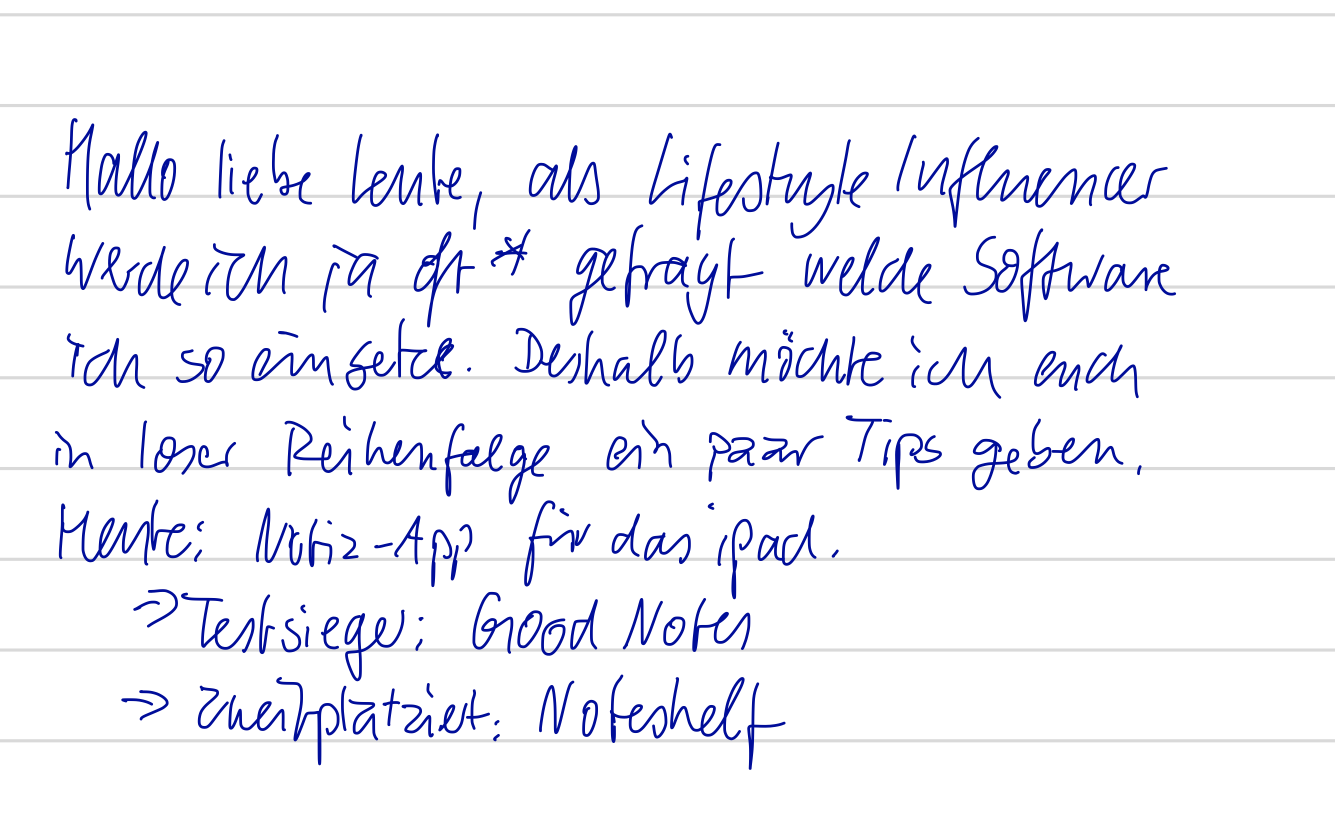 Hallo liebe Leute, als Lifestyle Influencer
werde ich ja oft * gefragt welche Software
ich so einsetze. Deshalb möchte ich euch
in loser Reihenfolge ein paar Tips geben.
Heute: Notiz-App für das ipad.
⇒ Testsieger: Good Notes
⇒ Zweitplatziert: Noteshelf